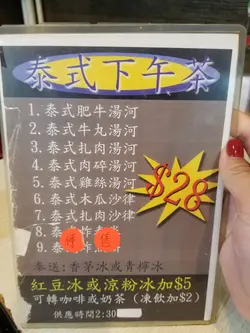 泰式下午茶
1. 泰式肥牛湯河
2. 泰式牛丸湯河
3. 泰式扎肉湯河
4. 泰式肉碎湯河
5. 泰式雞絲湯河
6. 泰式木瓜沙律
7. 泰式扎肉沙律
8. 泰式炸
9. 泰式炸
售
$28
泰送：香茅冰或青檸冰
紅豆冰或涼粉冰加$5
可轉咖啡或奶茶（凍飲加$2）
供應時間2:30